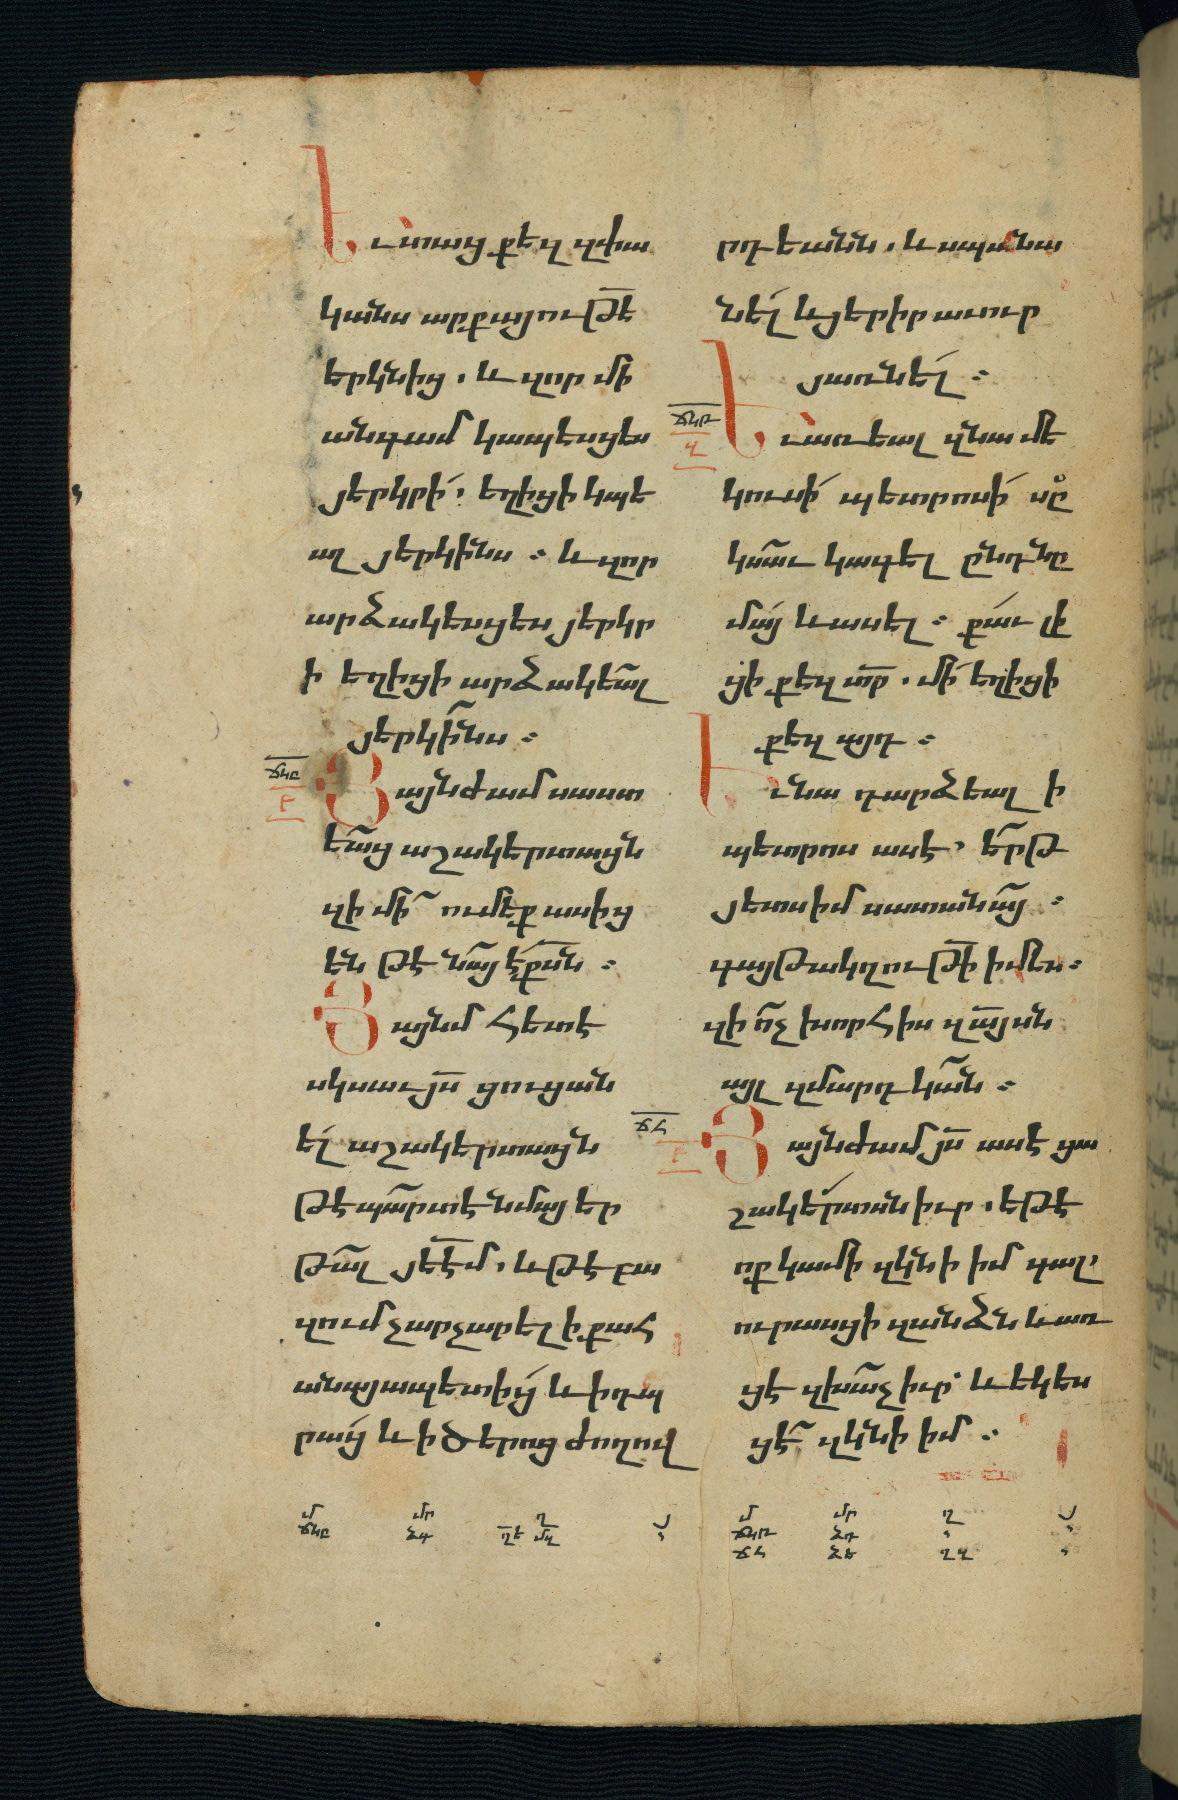 Եւ տաց քեզ զփա
կանս արքայութե̅
երկնից. և զոր մի
անգամ կապեսցես
յերկրի. եղիցի կապե
ալ յերկինս։ և զոր
արձակեսցես յերկր
ի եղիցի արձակեալ
յերկինս։
ՃԿԸ
Բ
Յայնժամ սաստ
եաց աշակերտացն
զի մի ումեք ասից
են թէ նայ է քս̅ն։
Յայնմ հետէ
սկսաւ յս̅ ցուցան
ել աշակերտացն
թէ պարտ է նմայ եր
թալ յե̅է̅մ. և թէ բա
զում չարչարել ի քահ
անայապետից և ի դպ
րաց և ի ծերոց ժողով
րդեանն. և սպանա
նել և յերիր աւուր
յառնել։
ՃԿԹ
Զ
Եւ առեալ զնա մե
կուսի պետրոսի սը
կսաւ կագել ընդ նը
մայ և ասել։ քաւ լի
ցի քեզ տր̅. մի եղիցի
քեզ այդ։
Եւ նա դարձեալ ի
պետրոս ասէ. երթ
յետս իմ սատանայ։
գայթակղութի̅ իմ ես։
զի ոչ խորհիս զա̅յսն
այլ զմարդկան։
ՃՀ
Բ
Յայնժամ յս̅ ասէ ցա
շակերտսն իւր. եթէ
ոք կամի զկնի իմ գալ՝
ուրասցի զանձն և առ
ցէ զխաչ իւր՝ և եկես
ցէ զկնի իմ։
մ մր ղ յ
ճկը ձգ ղե մզ
մ մր ղ յ
ճկթ ձդ
ճհ ձե ղզ